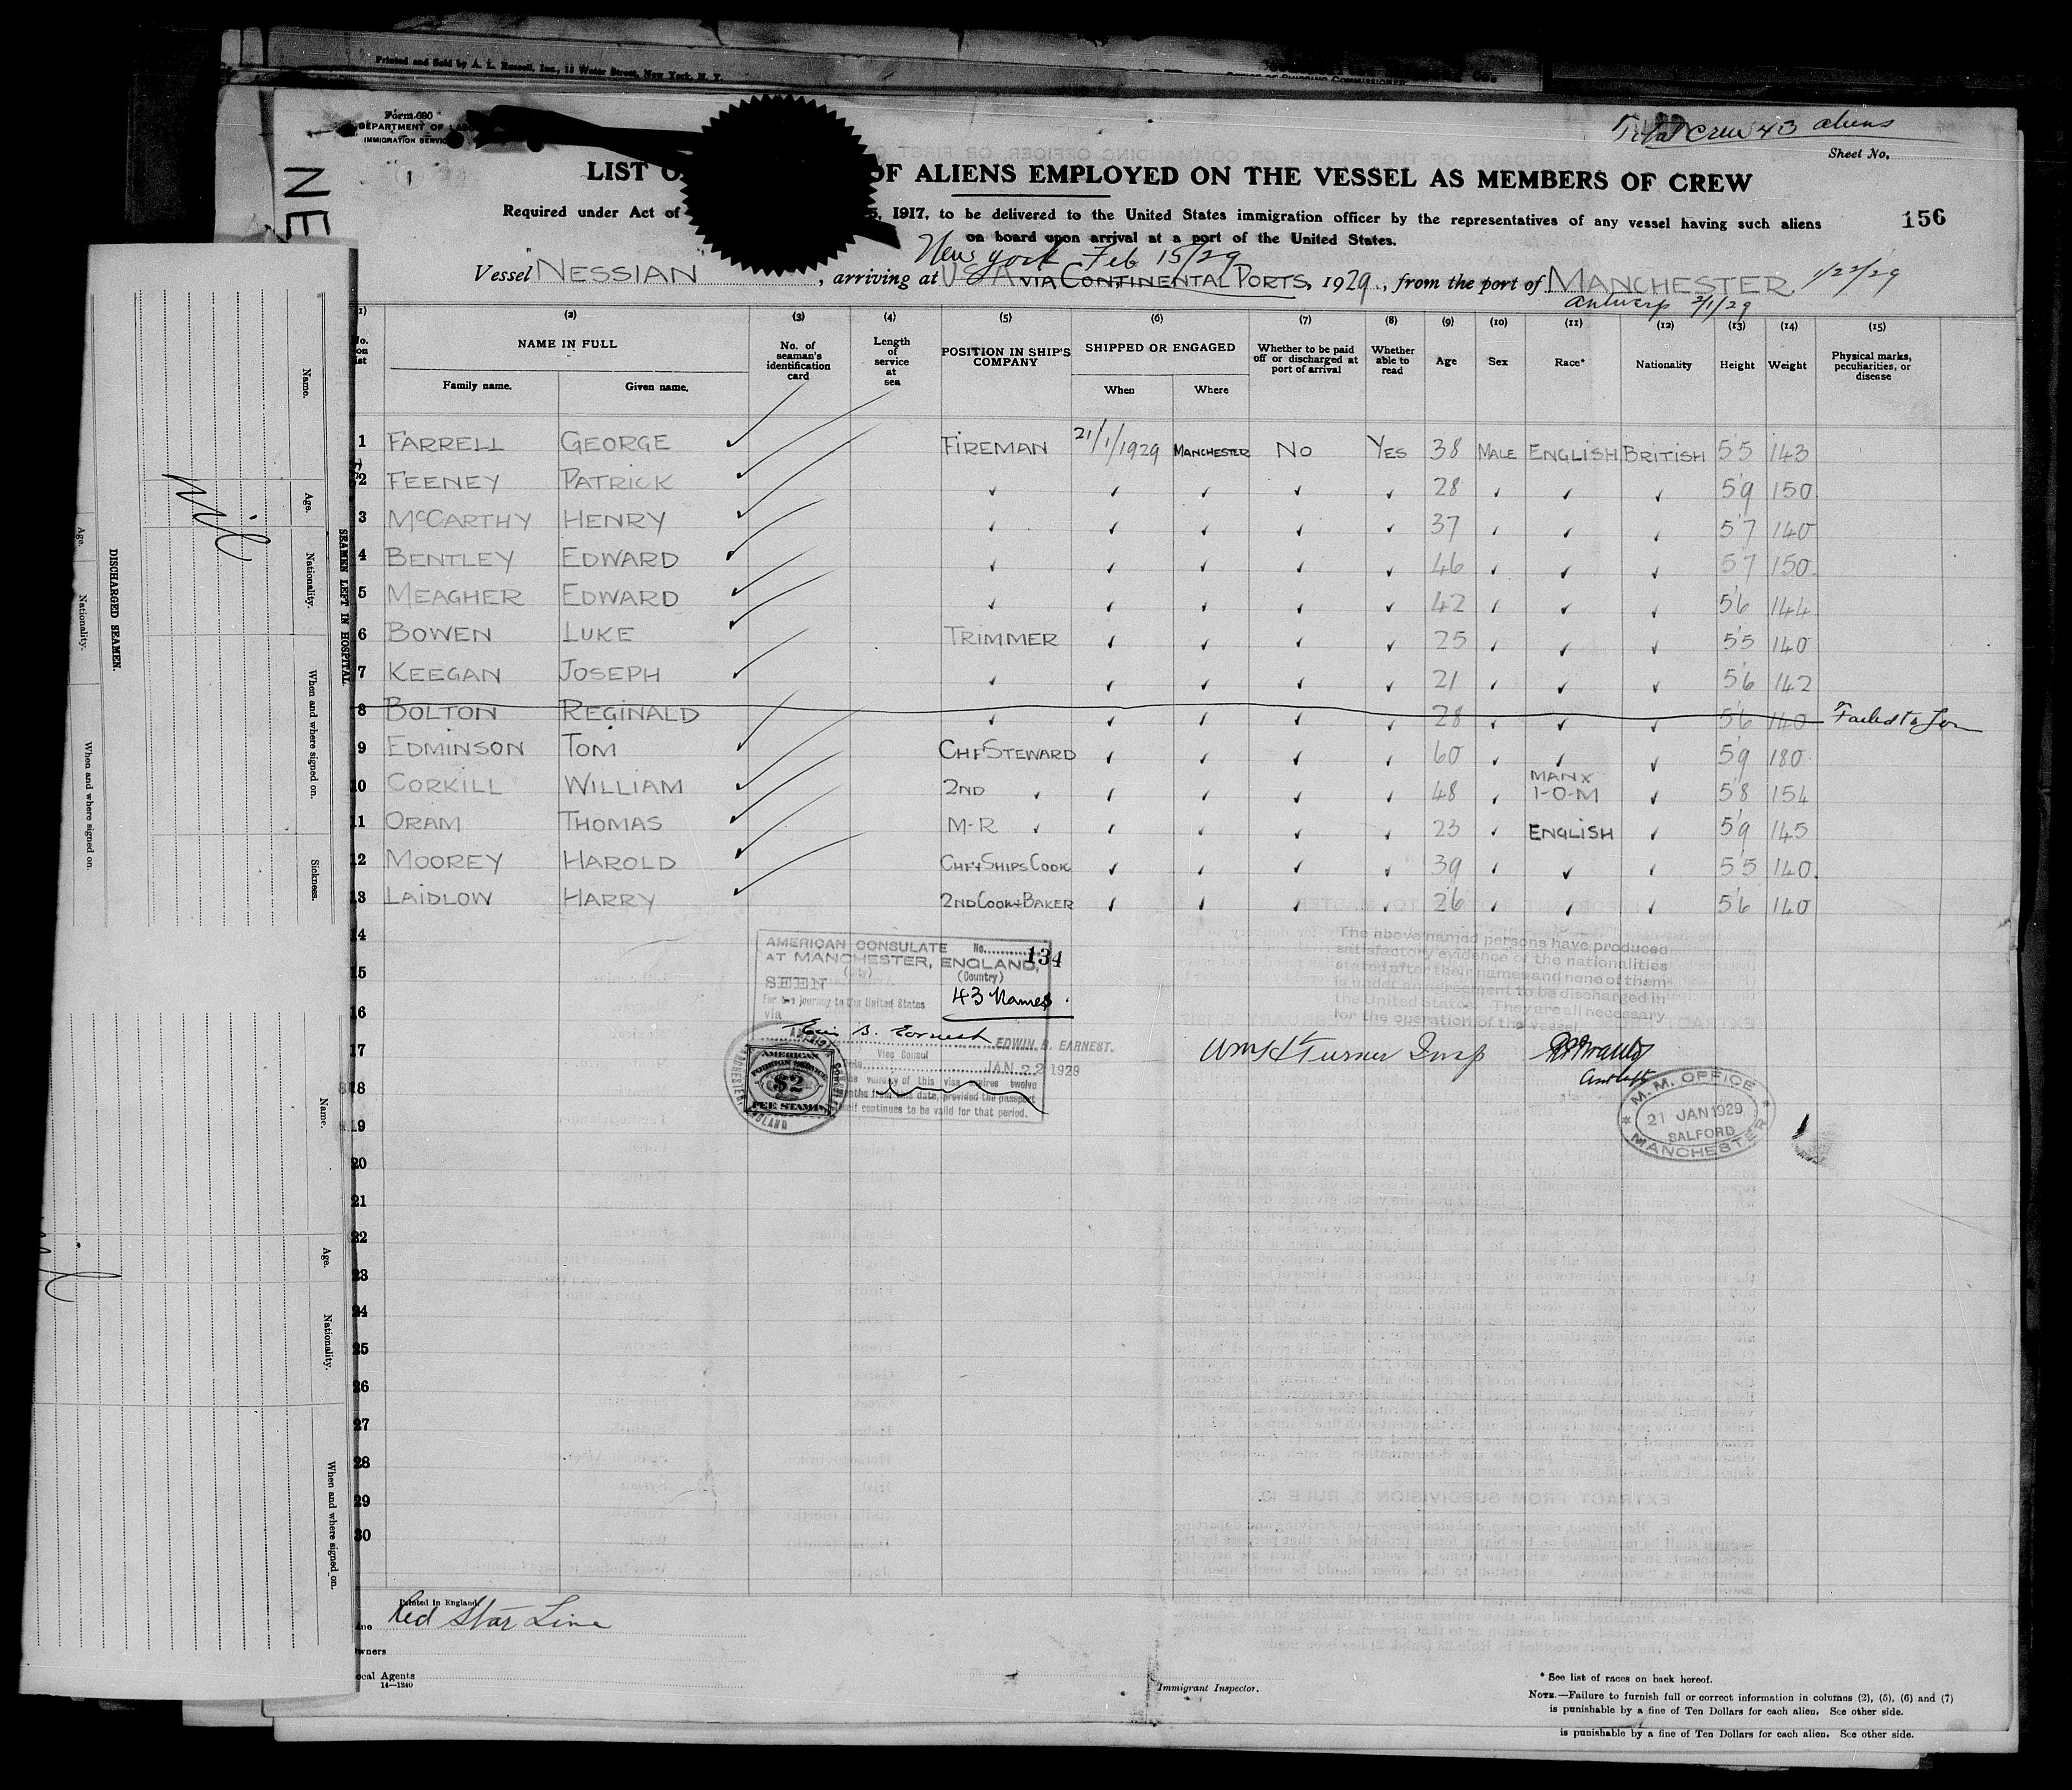 Printed and Sold by A. L. Russell, Inc., 15 Water Street, New York, N. Y.
Form 680
DEPARTMENT OF
IMMIGRATION SERVICE
1
NE
Total crew 43 aliens
Sheet No.
LIST OF ALIENS EMPLOYED ON THE VESSEL AS MEMBERS OF CREW
Required under Act of 5, 1917, to be delivered to the United States immigration officer by the representatives of any vessel having such aliens
on board upon arrival at a port of the United States.
156
New York Feb 15/29
Vessel NESSIAN, arriving at U S A VIA CONTINENTAL PORTS, 1929, from the port of MANCHESTER 1/22/29
Antwerp 2/1/29
(1) (2) (3) (4) (5) (6) (7) (8) (9) (10) (11) (12) (13) (14) (15)
No. on list NAME IN FULL No. of seaman's identification card Length of service at sea POSITION IN SHIP'S COMPANY SHIPPED OR ENGAGED Whether to be paid off or discharged at port of arrival Whether able to read Age Sex Race* Nationality Height Weight Physical marks, peculiarities, or disease
Family name. Given name. When Where
1 FARRELL GEORGE ✓ FIREMAN 21/1/1929 MANCHESTER NO YES 38 MALE ENGLISH BRITISH 5'5 143
2 FEENEY PATRICK ✓ ✓ ✓ ✓ ✓ ✓ 28 ✓ ✓ ✓ 5'9 150
3 McCARTHY HENRY ✓ ✓ ✓ ✓ ✓ ✓ 37 ✓ ✓ ✓ 5'7 140
4 BENTLEY EDWARD ✓ ✓ ✓ ✓ ✓ ✓ 46 ✓ ✓ ✓ 5'7 150
5 MEAGHER EDWARD ✓ ✓ ✓ ✓ ✓ ✓ 42 ✓ ✓ ✓ 5'6 144
6 BOWEN LUKE ✓ TRIMMER ✓ ✓ ✓ ✓ 25 ✓ ✓ ✓ 5'5 140
7 KEEGAN JOSEPH ✓ ✓ ✓ ✓ ✓ ✓ 21 ✓ ✓ ✓ 5'6 142
8 BOLTON REGINALD ✓ ✓ ✓ ✓ ✓ 28 ✓ ✓ ✓ 5'6 140 Failed to Join
9 EDMINSON TOM ✓ CHF STEWARD ✓ ✓ ✓ ✓ 60 ✓ ✓ ✓ 5'9 180
10 CORKILL WILLIAM ✓ 2ND ✓ ✓ ✓ ✓ ✓ 48 ✓ MANX I-O-M ✓ 5'8 154
11 ORAM THOMAS ✓ M-R ✓ ✓ ✓ ✓ ✓ 23 ✓ ENGLISH ✓ 5'9 145
12 MOOREY HAROLD ✓ CHF+SHIPS COOK ✓ ✓ ✓ ✓ 39 ✓ ✓ ✓ 5'5 140
13 LAIDLOW HARRY ✓ 2ND COOK+BAKER ✓ ✓ ✓ ✓ 26 ✓ ✓ ✓ 5'6 140
14
15
16
17
18
19
20
21
22
23
24
25
26
27
28
29
30
AMERICAN CONSULATE No. 134
AT MANCHESTER, ENGLAND,
(City) (Country)
SEEN
For the journey to the United States
via
43 Names.
Edwin B. Earnest
EDWIN B. EARNEST.
Vice Consul
JAN 22 1929
validity of this visa expires twelve
months from this date, provided the passport
itself continues to be valid for that period.
AMERICAN
FOREIGN SERVICE
$2
FEE STAMP
The above named persons have produced
satisfactory evidence of the nationalities
stated after their names and none of them
is under an agreement to be discharged in
the United States. They are all necessary
for the operation of the vessel.
Wm H Turner Insp
M. M. OFFICE
21 JAN 1929
SALFORD
MANCHESTER
Printed in England.
Red Star Line
Owners
Local Agents
14—1240
Immigrant Inspector.
* See list of races on back hereof.
NOTE.—Failure to furnish full or correct information in columns (2), (5), (6) and (7)
is punishable by a fine of Ten Dollars for each alien. See other side.
is punishable by a fine of Ten Dollars for each alien. See other side.
SEAMEN LEFT IN HOSPITAL.
Name. Age. Nationality. When and where signed on. Sickness.
Nil
DISCHARGED SEAMEN.
Age. Nationality. When and where signed on.
Name. Age. Nationality. When and where signed on.